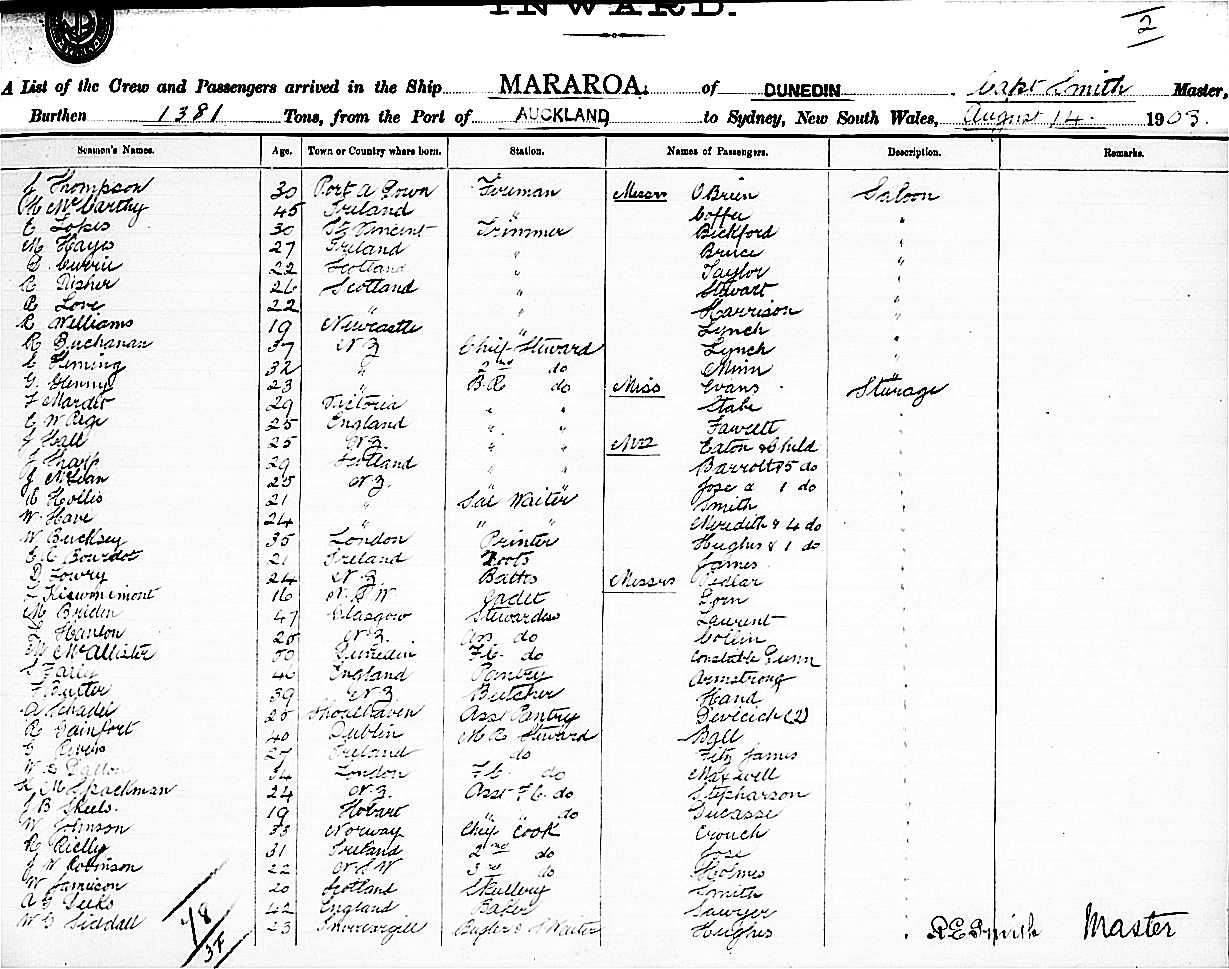 INWARD.
2
A List of the Crew and Passengers arrived in the Ship MARAROA, of DUNEDIN Capt Smith Master,
Burthen 1381 Tons, from the Port of AUCKLAND to Sydney, New South Wales, August 14. 1903.
Seamen's Names. Age. Town or Country where born. Station. Names of Passengers. Description. Remarks.
J Thompson 30 Port a Down Fireman Messrs O'Brien Saloon
McCarthy 45 Ireland " Coffee "
Lopes 30 St Vincent Trimmer Bickford "
M Hayes 27 Ireland " Bruce "
Currie 22 Scotland " Taylor "
R Disher 26 Scotland " Stewart "
R Love 22 " " Harrison "
R Williams 19 Newcastle " Lynch "
R Buchanan 37 N Z Chief Steward Lynch "
C Fleming 32 " 2nd do Minn "
G. 23 " B.R do Miss Evans Steerage
29 Victoria " " Stabe
C W Page 25 England " " Fawcett
J Hall 25 N Z. " " Mrs Eaton & Child
J Sharp 29 Scotland " " Barrott & 5 do
J McLean 25 N Z. " " Jose & 1 do
Hollis 21 " Sal Waiter Smith
W. Have 24 " " " Meredith & 4 do
W Bucksey 35 London Printer Hughes & 1 do
Bourdot 21 Ireland Boots James
Lowry 24 N Z. Baths Messrs Pedlar
16 N. S W Cadet Lorn
M Briden 47 Glasgow Stewardess Laurent
Hanlon 25 N Z. As. do Collin
McAllister 50 Dunedin F.C. do Constable Gunn
Early 46 England Pantry Armstrong
F Butter 39 N Z Butcher Hand
A Schadel 25 Shoalhaven Asst Pantry Devlcich (2)
R Dainfort 40 Dublin M R Steward Ball
Rivers 27 Ireland do Fitz James
W Dalton 34 London F.C. do Maxwell
M Spackman 24 N Z. Asst F.C. do Stepharson
J B Skeels. 19 Hobart " do Ducasse
W Johnson 33 Norway Chief Cook Crouch
R Rielly 31 Ireland 2nd do Jose
J W Robinson 22 N. S W 3rd do Holmes
W Jamieson 20 Scotland Skullery Smith
A G Deeks 42 England Baker Sawyer
W G Siddall 23 Invercargill Bugler & S Waiter Hughes
78
37
R E Smith Master